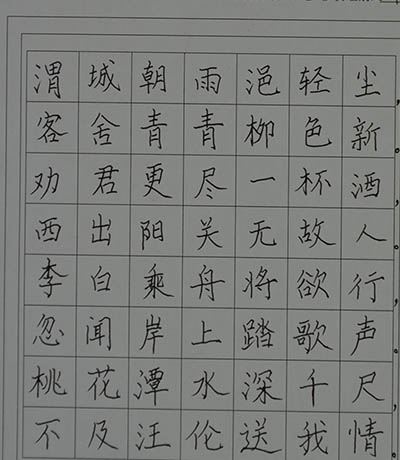 渭城朝雨浥轻尘，
客舍青青柳色新。
劝君更尽一杯酒，
西出阳关无故人。
李白乘舟将欲行，
忽闻岸上踏歌声。
桃花潭水深千尺，
不及汪伦送我情。